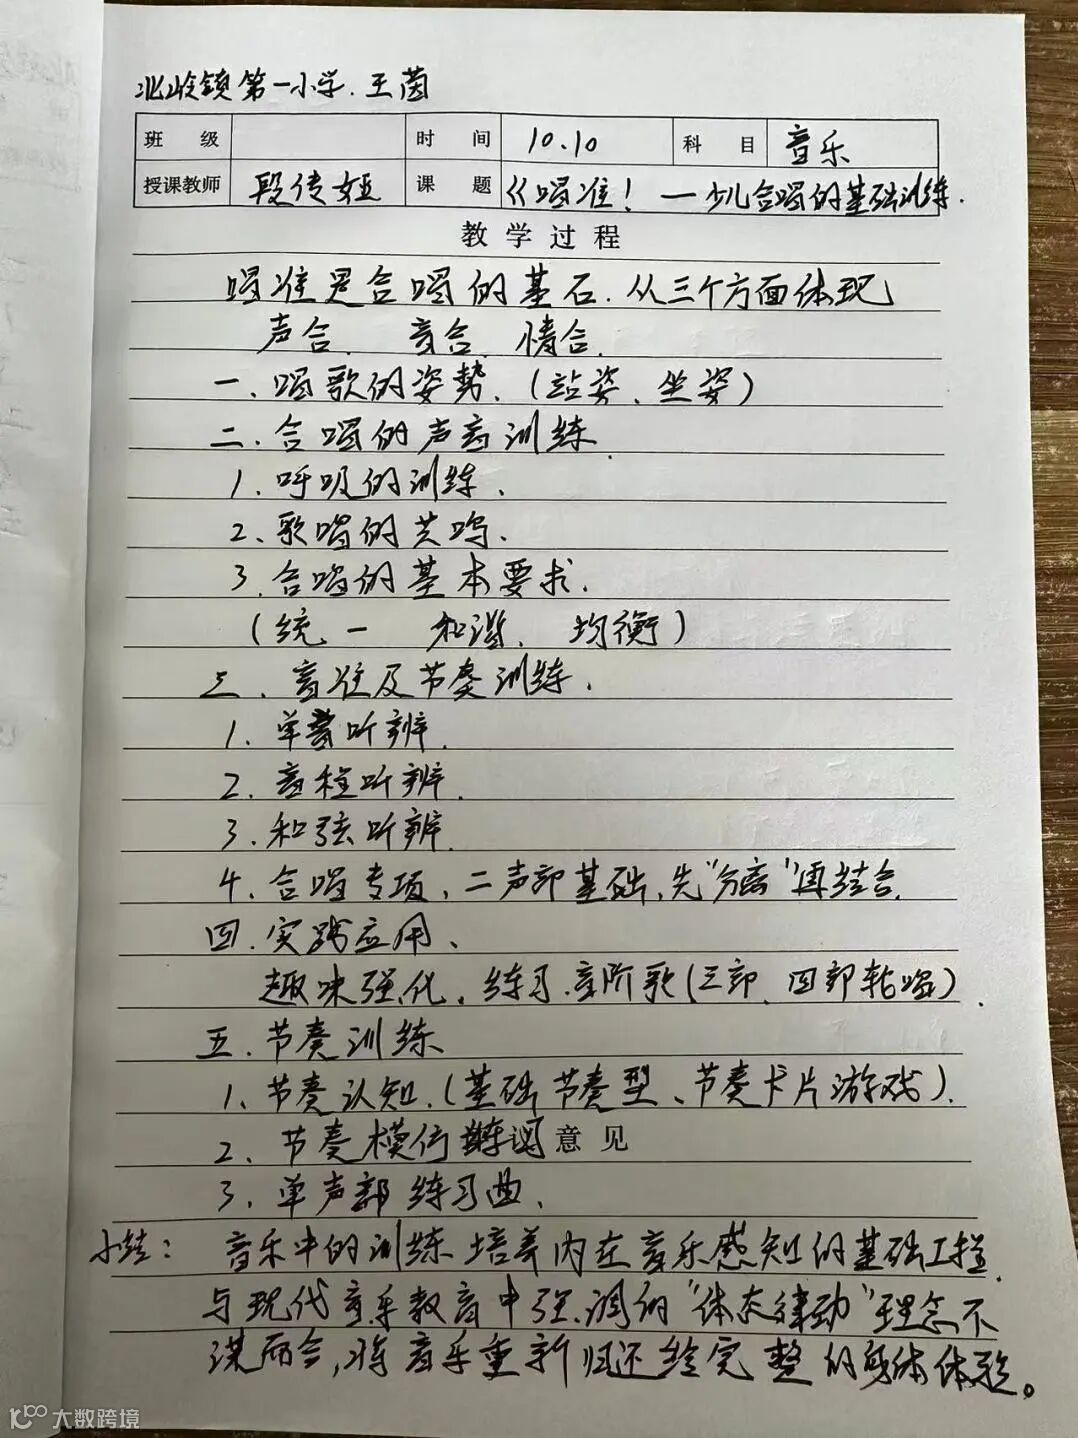 北岭镇第一小学.王茵
班 级 时 间 10.10 科 目 音乐
授课教师 段传娅 课 题 《唱准！一少儿合唱的基础训练.
教学过程
唱准是合唱的基石.从三个方面体现
声合. 音合. 情合.
一.唱歌的姿势.(站姿、坐姿)
二.合唱的声音训练.
1.呼吸的训练.
2、歌唱的共鸣.
3.合唱的基本要求.
(统一 和谐. 均衡)
三.音准及节奏训练.
1.单音听辨.
2.音程听辨.
3.和弦听辨.
4.合唱专项.二声部基础,先"分离"再结合.
四.实践应用、
趣味强化.练习.音阶歌(三部、四部轮唱).
五.节奏训练
1、节奏认知.(基础节奏型、节奏卡片游戏).
2、节奏模仿 意见
3、单声部练习曲.
小结: 音乐中的训练培养内在音乐感知的基础工程.
与现代音乐教育中强调的"体态律动"理念不
谋而合,将音乐重新归还给完整的身体体验。
大数跨境